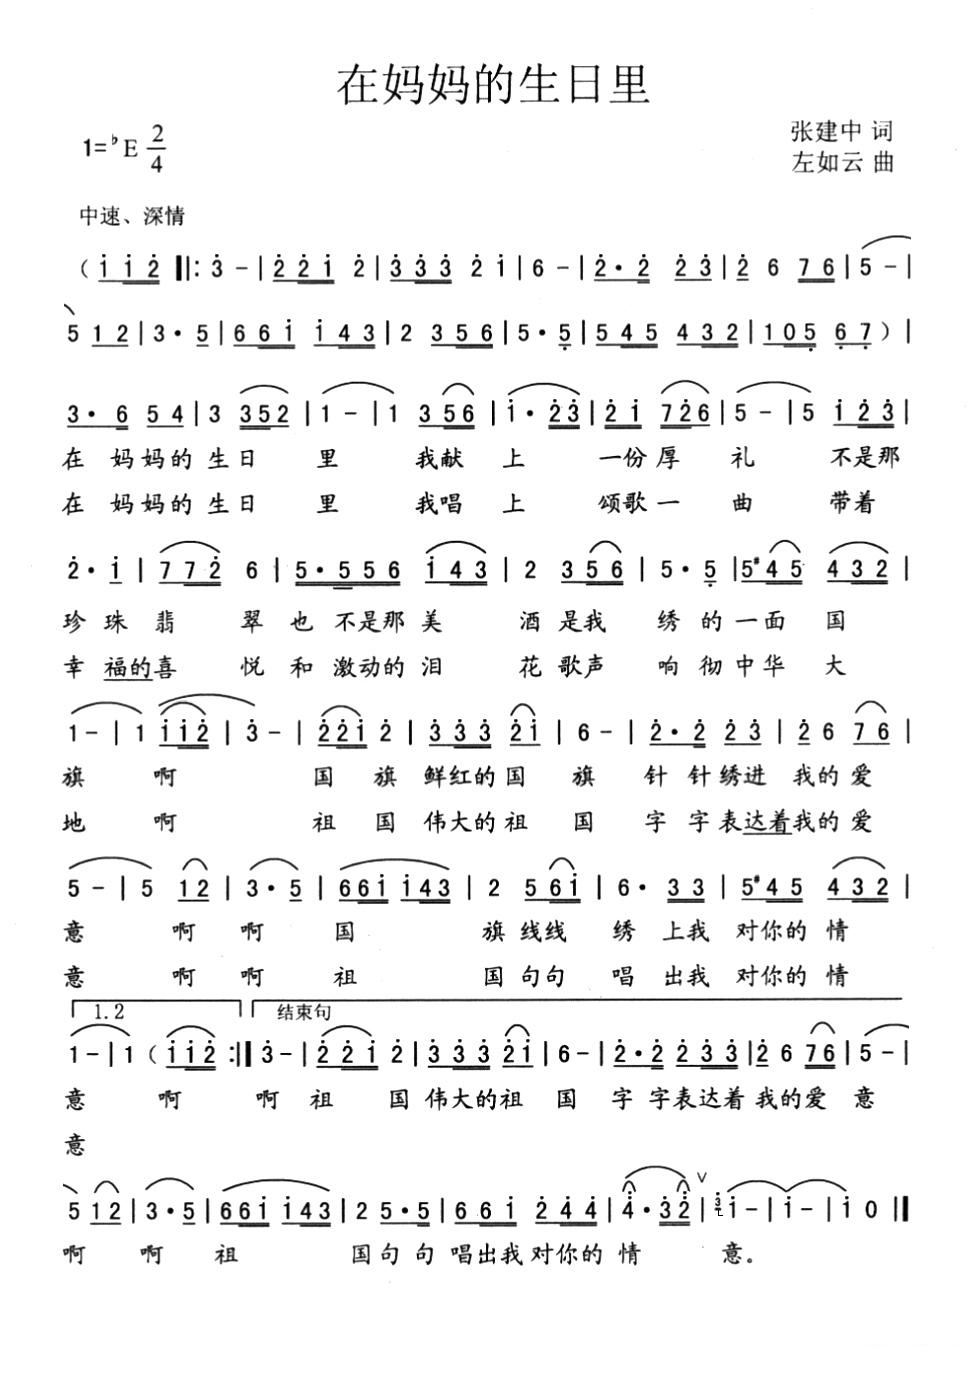 在妈妈的生日里
1=♭E 2/4
张建中 词
左如云 曲
中速、深情
( i̇ i̇ 2̇ ‖: 3̇ - | 2̇ 2̇ i̇ 2̇ | 3̇ 3̇ 3̇ 2̇ i̇ | 6 - | 2̇· 2̇ 2̇ 3̇ | 2̇ 6 7 6 | 5 - |
5 1 2 | 3· 5 | 6 6 i̇ i̇ 4 3 | 2 3 5 6 | 5· 5̣ | 5 4 5 4 3 2 | 1 0 5̣ 6̣ 7̣ ) |
3· 6 5 4 | 3 3 5 2 | 1 - | 1 3 5 6 | i̇· 2̇ 3̇ | 2̇ i̇ 7 2̇ 6 | 5 - | 5 i̇ 2̇ 3̇ |
在 妈 妈的 生日 里 我献 上 一份厚 礼 不是那
在 妈 妈的 生日 里 我唱 上 颂歌一 曲 带着
2̇· i̇ | 7 7 2̇ 6 | 5· 5 5 6 i̇ 4 3 | 2 3 5 6 | 5· 5̣ | 5 #4 5 4 3 2 |
珍 珠 翡 翠 也 不是那 美 酒 是我 绣 的 一面 国
幸 福的喜 悦 和 激动的 泪 花 歌声 响 彻 中华 大
1 - | 1 i̇ i̇ 2̇ | 3̇ - | 2̇ 2̇ i̇ 2̇ | 3̇ 3̇ 3̇ 2̇ i̇ | 6 - | 2̇· 2̇ 2̇ 3̇ | 2̇ 6 7 6 |
旗 啊 国 旗 鲜红的国 旗 针 针 绣进 我的 爱
地 啊 祖 国 伟大的祖 国 字 字 表达着我的 爱
5 - | 5 1 2 | 3· 5 | 6 6 i̇ i̇ 4 3 | 2 5 6 i̇ | 6· 3 3 | 5 #4 5 4 3 2 |
意 啊 啊 国 旗 线线 绣 上我 对你的 情
意 啊 啊 祖 国 句句 唱 出我 对你的 情
1.2 结束句
1 - | 1 ( i̇ i̇ 2̇ :‖ 3̇ - | 2̇ 2̇ i̇ 2̇ | 3̇ 3̇ 3̇ 2̇ i̇ | 6 - | 2̇· 2̇ 2̇ 3̇ 3̇ | 2̇ 6 7 6 | 5 - |
意 啊 啊 祖 国 伟大的祖 国 字 字表达着 我的爱 意
意
5 1 2 | 3· 5 | 6 6 i̇ i̇ 4 3 | 2 5 5· 5 | 6 6 i̇ 2̇ 4̇ 4̇ | 4̇· 3̇ 2̇ ∨ | 3̇ i̇ - | i̇ - | i̇ 0 ‖
啊 啊 祖 国 句 句 唱出我 对你的 情 意。